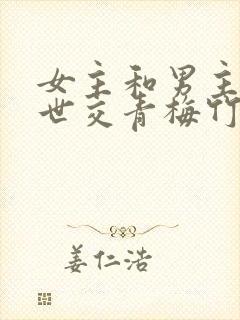 女主和男主
世交青梅竹
姜仁浩